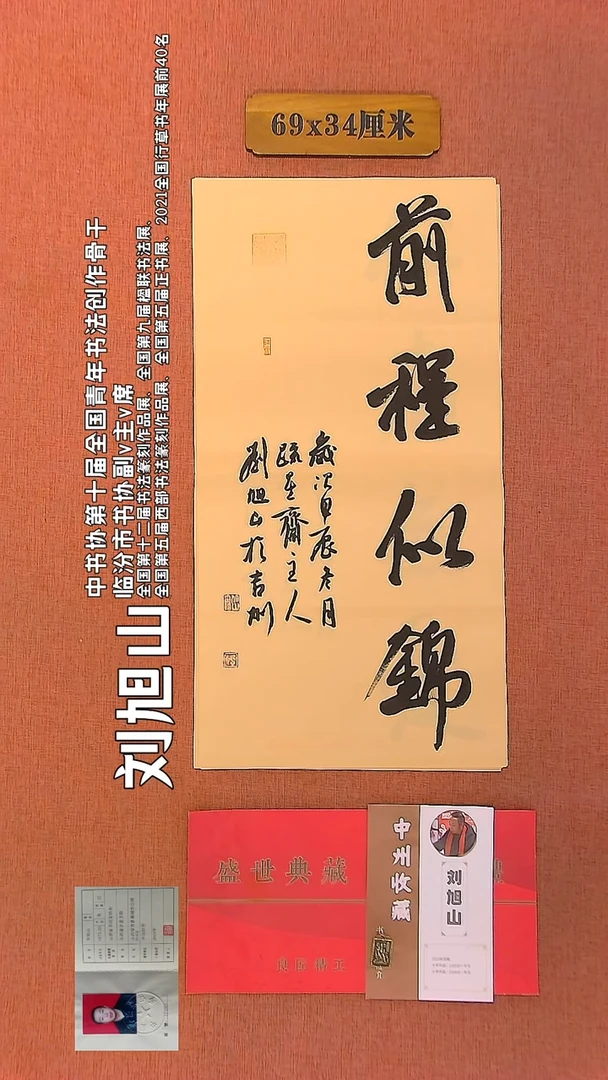 69x34厘米
前程似錦
歲次甲辰冬月
疏堇齋主人
劉旭山於吉州
刘旭山
中书协第十届全国青年书法创作骨干
临汾市书协副v主v席
全国第十二届书法篆刻作品展、全国第九届楹联书法展、
全国第五届西部书法篆刻作品展、全国第五届正书展、2021全国行草书年展前40名
盛世典藏
中州收藏
刘旭山